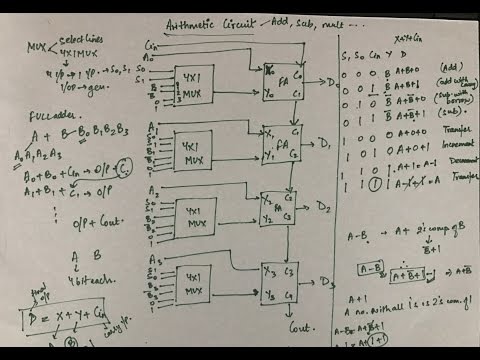 Arithmetic Circuit - Add, Sub, mult ...
MUX
select lines
4X1 MUX
4 I/P → 1 Y/P. → S0, S1
1/OP → gen.
Full adder
A + B → B0 B1 B2 B3
A0 A1 A2 A3
A0 + B0 + Cin → O/P + C1
A1 + B1 + C1 → O/P
O/P + Cout.
A B
4 bit each.
final O/P
D = X + Y + Cin
carry i/p.
A B
Cin
A0
S1
S0
B
B
0
1
4X1
MUX
X0 C0
FA
Y0 C1
D0
A1
S1
S0
B1
B1
0
1
4X1
MUX
X1 C1
FA
Y1 C2
D1
A2
S1
S0
B2
B2
0
1
4X1
MUX
X2 C2
FA
Y2 C3
D2
A3
S1
S0
B3
B3
0
1
4X1
MUX
X3 C3
Y3 C4
D3
Cout.
X+Y+Cin
S1 S0 Cin Y D
0 0 0 B A+B+0 (Add)
0 0 1 B A+B+1 (add with carry)
0 1 0 B̅ A+B̅+0 (sub with borrow)
0 1 1 B̅ A+B̅+1 (sub).
1 0 0 0 A+0+0 Transfer
1 0 1 0 A+0+1 Increment
1 1 0 1 A+1 = A-1 Decrement
1 1 1 1 A-1+1 = A Transfer
A-B → A + 2's comp of B
B̅+1
A-B A+B̅+1 → A+B̅
A+1
A no. with all 1s is 2's com. of 1
A-B = A+B̅+1
A-1 = A+1+1